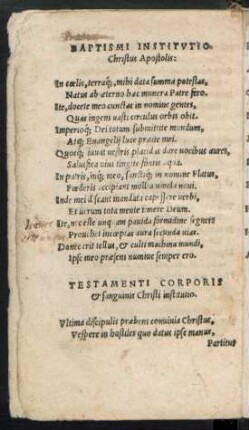 BAPTISMI INSTITVTIO.
Christus Apostolis:
In cœlis, terraq́;, mihi data summa potestas,
Natus ab æterno hæc munera Patre fero.
Ite, docete meo cunctas in nomine gentes,
Quas ingens uasti circulus orbis obit.
Imperioq́; Dei totum submittite mundum,
Atq́; Euangelij luce præite mei.
uestris placidas dare uocibus aures,
tingite fonte aqua.
In patris, inq́; meo, sanctoq́; in nomine Flatus,
Fœderis accipiant mollia uincla noui.
Inde mei discant mandata capessere uerbi,
Et uerum tota mente timere Deum.
Ite, nec este unquam pauida formidine segnes
Prouehet incœptas aura secunda uias.
Donec erit tellus, & culti machina mundi,
Ipse meo præsens numine semper ero.
TESTAMENTI CORPORIS
& sanguinis Christi institutio.
Vltima discipulis præbens conuiuia Christus,
Vespere in hostiles quo datus ipse manus,
Partitus